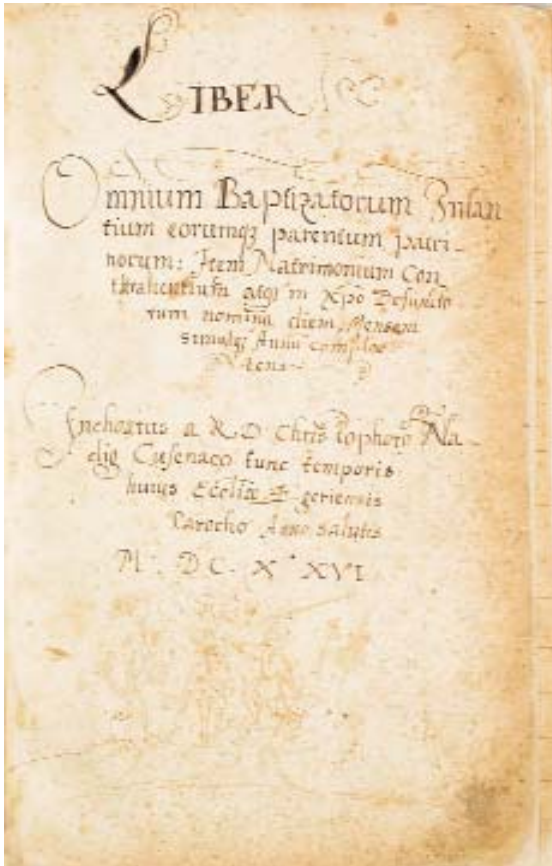 LIBER
Omnium Baptizatorum Infan
tium eorumqʒ parentum patri-
norum: Item Matrimonium Con
trahentium atqʒ in Xpo Defuncto
rum nomina diem Mensem
simulqʒ Annū complec
tens
Inchoatus a R D Christophoro
tunc temporis
huius Ecclīæ
Parocho Anno salutis
M. DC. X XVI